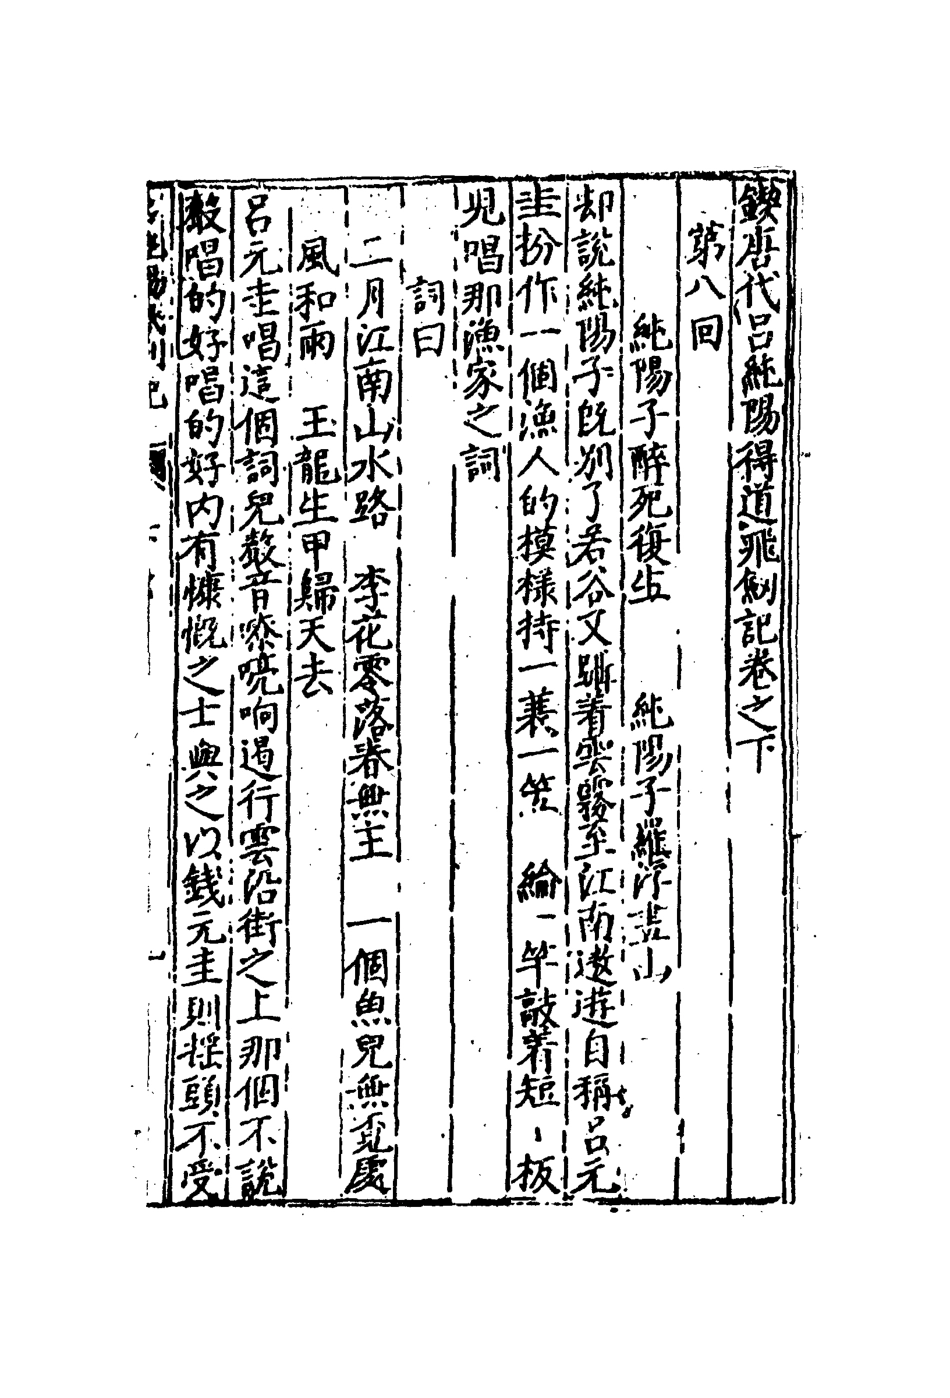 鍥唐代呂純陽得道飛劍記卷之下
第八回
純陽子醉死復生　純陽子羅浮畫山
却說純陽子旣別了若谷又躡着雲霧至江南遨遊自稱呂元
圭扮作一個漁人的模樣持一蓑一笠　綸一竿敲着短〻板
兒唱那漁家之詞
詞曰
二月江南山水路　李花零落春無主　一個魚兒無覓處
風和雨　玉龍生甲歸天去
呂元圭唱這個詞兒聲音嘹喨响遏行雲沿街之上那個不說
聲唱的好唱的好內有慷慨之士與之以錢元圭則摇頭不受